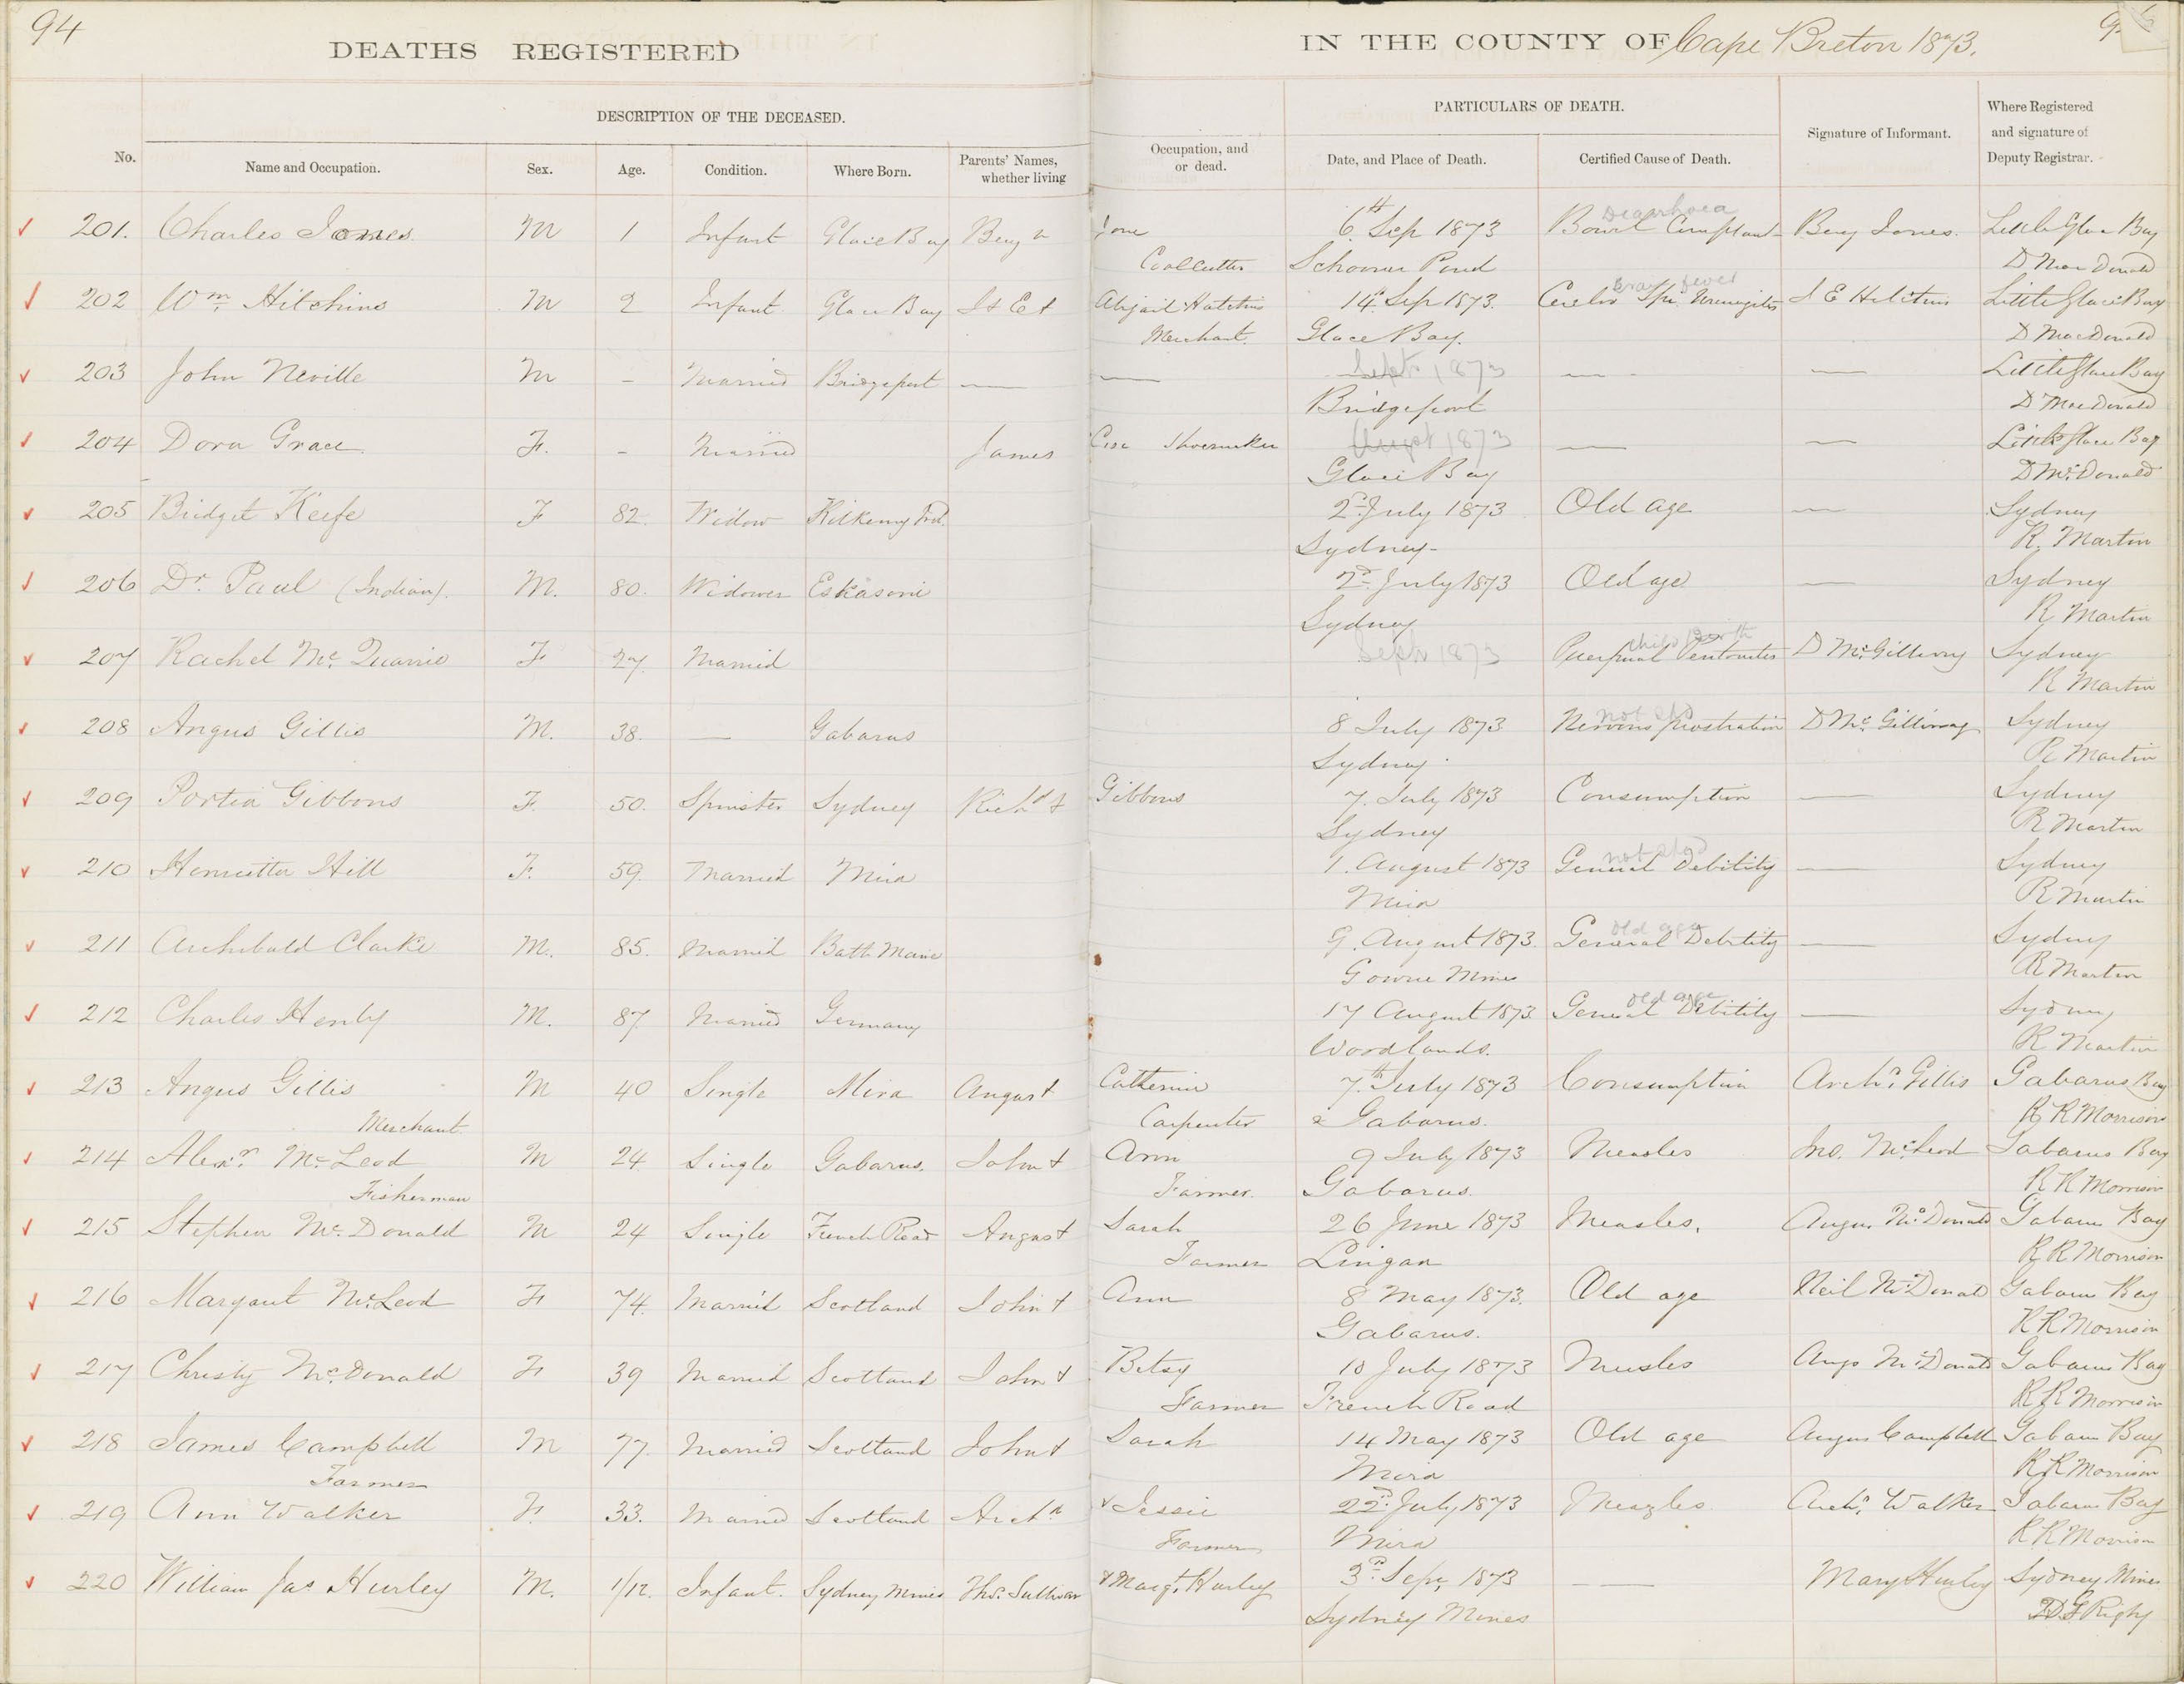 94
DEATHS REGISTERED
IN THE COUNTY OF Cape Breton 1873.
DESCRIPTION OF THE DECEASED.
PARTICULARS OF DEATH.
No.
Name and Occupation.
Sex.
Age.
Condition.
Where Born.
Parents' Names, whether living
Occupation, and or dead.
Date, and Place of Death.
Certified Cause of Death.
Signature of Informant.
Where Registered and signature of Deputy Registrar.
201. Charles Jones M 1 Infant Glace Bay Benj n Jone 6th Sep 1873 Diarrhoea Bowel Complaint Benj Jones. Little Glace Bay
Coalcutter Schooner Pond D MacDonald
202 Wm. Hitchins M 2 Infant Glace Bay Abijail Hutchins 14 Sep 1873. Brain fever Cerebro Spi. Meningitis J E Hitchins Little Glace Bay
Merchant. Glace Bay. D MacDonald
203 John Neville M – Married Bridgeport — — Sept 1873 — — Little Glace Bay
Bridgeport D MacDonald
204 Dora Grace F. – Married James Shoemaker August 1873 — — Little Glace Bay
Glace Bay D McDonald
205 Bridget Keefe F 82. Widow Kilkenny Ird. 2d July 1873 Old age — Sydney
Sydney- R. Martin
206 Dr. Paul (Indian). M. 80. Widower Eskasoni 2d July 1873 Old age — Sydney
Sydney R. Martin
207 Rachel Mc Quarrie F 27. Married Sept 1873 child birth Puerperal Peritonitis D McGillivray Sydney
R Martin
208 Angus Gillis M. 38. — Gabarus 8 July 1873 not spd Nervous prostration D McGillivray Sydney
Sydney R Martin
209 Portia Gibbons F. 50. Spinster Sydney Richd & Gibbons 7. July 1873 Consumption — Sydney
Sydney R Martin
210 Henrietta Hill F. 59. Married Mira 1. August 1873 not spd General Debility — Sydney
Mira R Martin
211 Archibald Clarke M. 85. Married Bath Maine 9. August 1873. old age General Debility — Sydney
Gowrie Mines R Martin
212 Charles Henly M. 87 Married Germany 17 August 1873 old age General Debility — Sydney
Woodlands. R Martin
213 Angus Gillis M 40 Single Mira Angus & Catherine 7th July 1873 Consumption Archd. Gillis Gabarus Bay
Merchant. Carpenter Gabarus. R R Morrison
214 Alexr. McLeod M 24 Single Gabarus. John & Ann 9 July 1873 Measles Jno. McLeod Gabarus Bay
Fisherman Farmer. Gabarus. R R Morrison
215 Stephen Mc. Donald M 24 Single French Road Angus & Sarah 26 June 1873 Measles. Angus McDonald Gabarus Bay
Farmer Lingan R R Morrison
216 Margaret McLeod F 74. Married Scotland John & Ann 8 May 1873. Old age Neil McDonald Gabarus Bay
Gabarus. R R Morrison
217 Christy McDonald F 39 Married Scotland John & Betsy 10 July 1873 Measles Angs McDonald Gabarus Bay
Farmer French Road R R Morrison
218 James Campbell M 77. Married Scotland John & Sarah 14 May 1873 Old age Angus Campbell Gabarus Bay
Farmer Mira R R Morrison
219 Ann Walker F. 33. Married Scotland Archd & Jessie 22d. July 1873 Meazles Archd. Walker Gabarus Bay
Farmer Mira R R Morrison
220 William Jas Hurley M. 1/12. Infant. Sydney Mines Thos. Sullivan & Margt. Hurley 3d. Sep. 1873 — Mary Hurley Sydney Mines
Sydney Mines